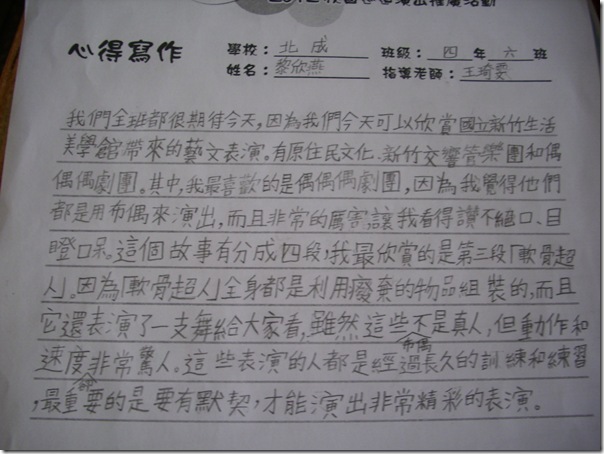 心得寫作
學校：北成 班級：四年六班
姓名：黎欣燕 指導老師：王琦雯
我們全班都很期待今天，因為我們今天可以欣賞國立新竹生活
美學館帶來的藝文表演。有原住民文化、新竹交響管樂團和偶
偶偶劇團。其中，我最喜歡的是偶偶偶劇團，因為我覺得他們
都是用布偶來演出，而且非常的厲害，讓我看得讚不絕口、目
瞪口呆。這個故事有分成四段，我最欣賞的是第三段「軟骨超
人」。因為「軟骨超人」全身都是利用廢棄的物品組裝的，而且
它還表演了一支舞給大家看，雖然這些布偶不是真人，但動作和
速度非常驚人。這些表演的人都是經過長久的訓練和練習
，最重要的是要有默契，才能演出非常精彩的表演。